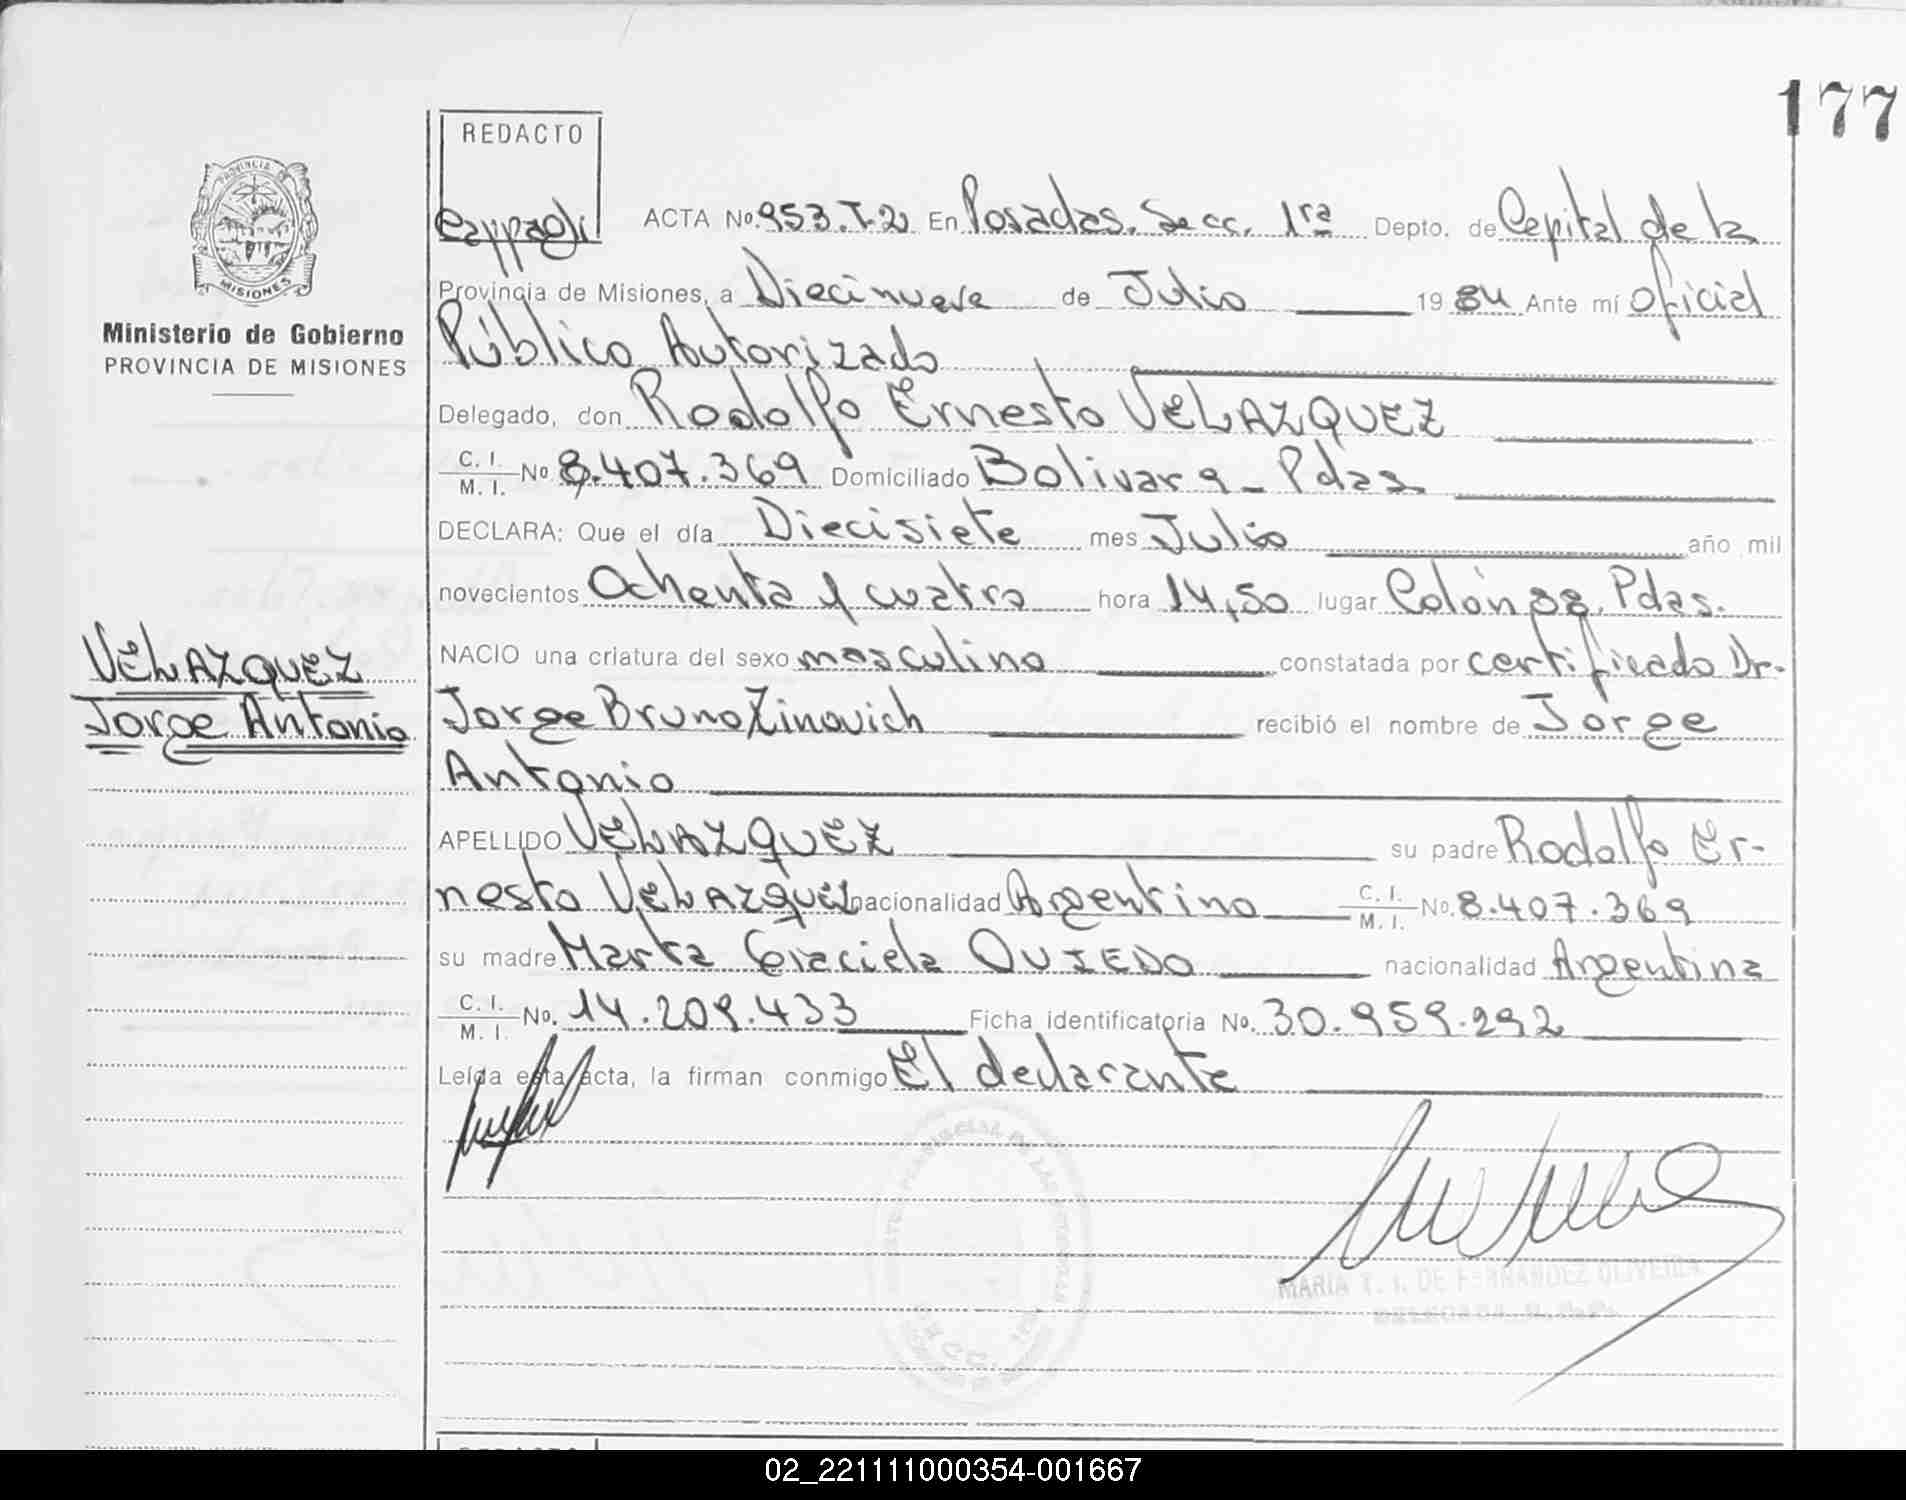 177
REDACTO
PROVINCIA DE
MISIONES
Ministerio de Gobierno
PROVINCIA DE MISIONES
ACTA No. 953.T-2 En Posadas. Secc. 1ra Depto. de Capital de la
Provincia de Misiones, a Diecinueve de Julio 1984 Ante mí Oficial
Público Autorizado
Delegado, don Rodolfo Ernesto VELAZQUEZ
C. I. / M. I. No 8.407.369 Domiciliado Bolivar 9 - Pdas
DECLARA: Que el día Diecisiete mes Julio año mil
novecientos Ochenta y cuatro hora 14,50 lugar Colón 88. Pdas.
NACIO una criatura del sexo masculino constatada por certificado Dr.
Jorge Bruno Zinovich recibió el nombre de Jorge
Antonio
VELAZQUEZ
Jorge Antonio
APELLIDO VELAZQUEZ su padre Rodolfo Er-
nesto VELAZQUEZ nacionalidad Argentino C. I. / M. I. No. 8.407.369
su madre Marta Graciela OVIEDO nacionalidad Argentina
C. I. / M. I. No. 14.209.433 Ficha identificatoria No. 30.959.292
Leída esta acta, la firman conmigo El declarante
MARIA T. I. DE FERNANDEZ OLIVEIRA
DELEGADA
02_221111000354-001667